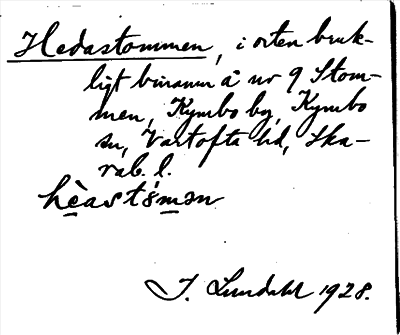 Hedastommen, i orten bruk-
ligt binamn å nr 9 Stom-
men, Kymbo by, Kymbo
sn, Vartofta hd, Ska-
rab. l.
hèastọmən
I. Lundahl 1928.